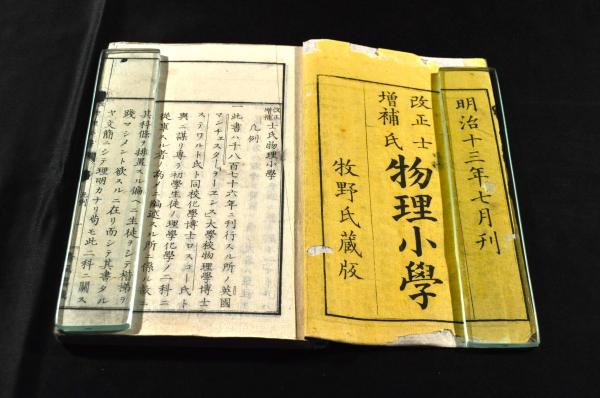 明治十三年七月刊
改正
増補
士氏物理小學
牧野氏藏版
改正
増補士氏物理小學
凡例
一此書ハ千八百七十六年ニ刊行スル所ノ英國
マンチェスターヲーエンス大學校物理學博士
ステワルト氏ト同校化學博士ロスコー氏ト
與ニ謀リ專ラ初學生徒ノ理學化學ノ二科ニ
從事スル者ノ為メニ編述スル所ニ係ル故ニ
其科條ヲ排置スル偏ヘニ生徒ヲシテ楷梯ヲ
踐マシメント欲スルニ在リ而シテ其書タル
ヤ文簡ニシテ理明カナリ苟モ此二科ニ關ス